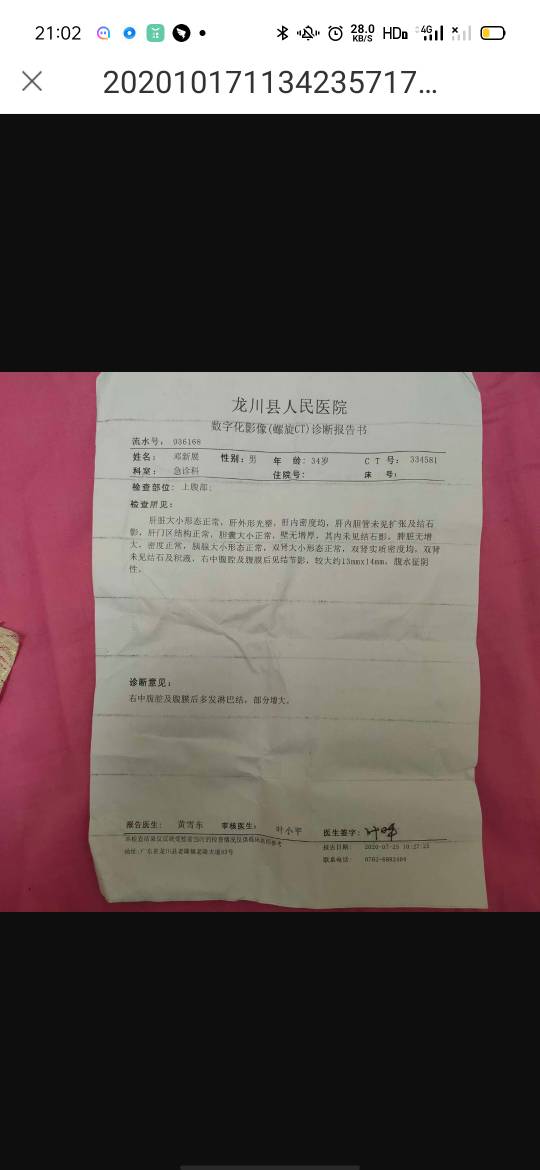 21:02
28.0
KB/S
HD
4G
202010171134235717...
龙川县人民医院
数字化影像(螺旋CT)诊断报告书
流水号: 936168
姓名: 邓新展 性别: 男 年 龄: 34岁 C T 号: 334581
科室: 急诊科 住院号: 床 号:
检查部位: 上腹部;
检查所见:
肝脏大小形态正常, 肝外形光整, 肝内密度均, 肝内胆管未见扩张及结石
影, 肝门区结构正常, 胆囊大小正常, 壁无增厚, 其内未见结石影, 脾脏无增
大, 密度正常, 胰腺大小形态正常, 双肾大小形态正常, 双肾实质密度均, 双肾
未见结石及积液。右中腹腔及腹膜后见结节影, 较大约13mmx14mm, 腹水征阴
性。
诊断意见:
右中腹腔及腹膜后多发淋巴结, 部分增大。
报告医生: 黄雪东 审核医生: 叶小平 医生签字:
报告日期: 2020-07-25 10:27:25
地址:广东省龙川县老隆镇老隆大道93号
联系电话: